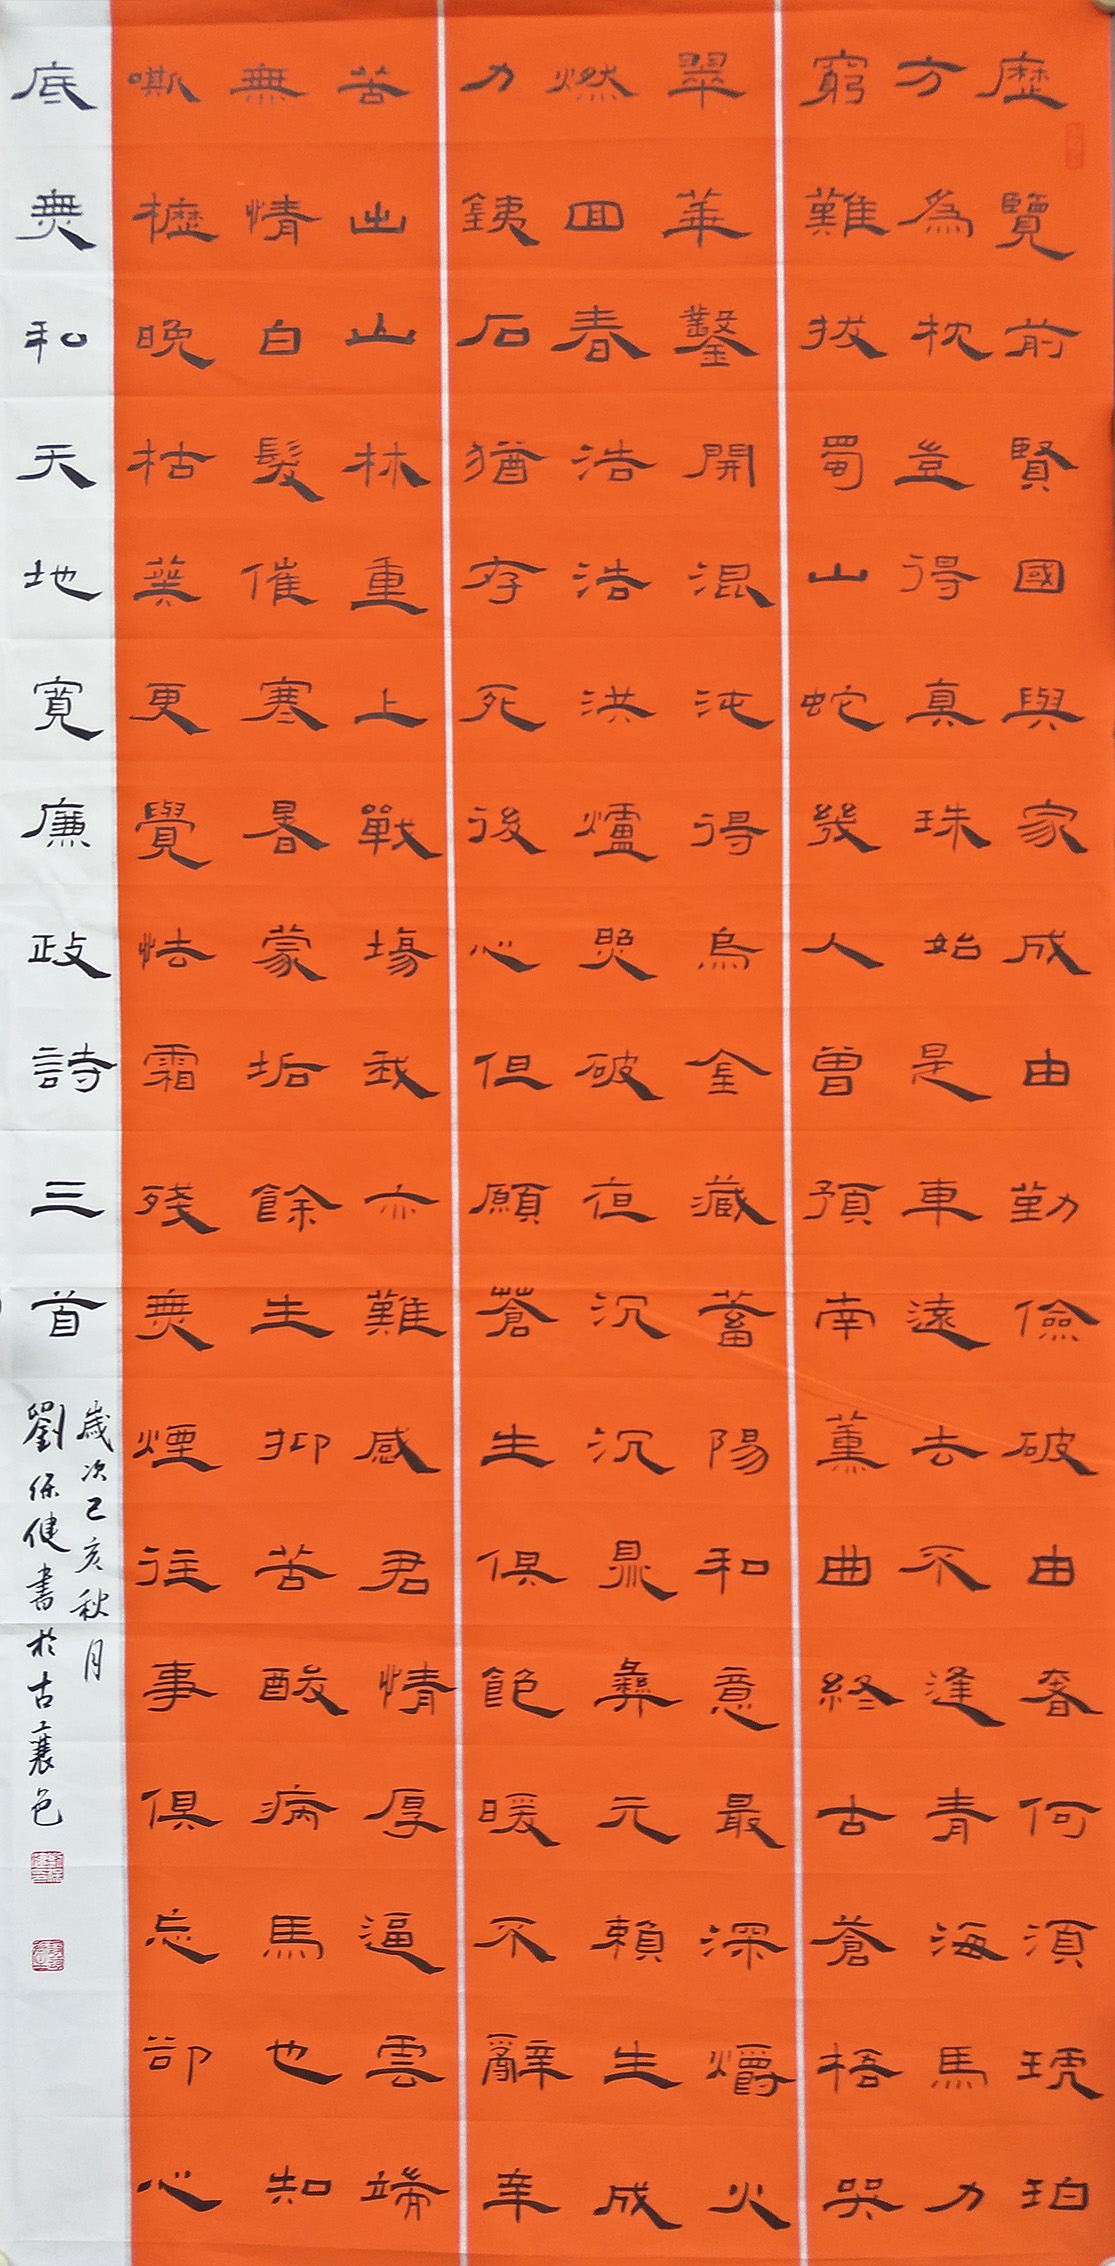 歷覽前賢國與家成由勤儉破由奢何須琥珀
方為枕豈得真珠始是車遠去不逢青海馬力
窮難拔蜀山蛇幾人曾預南薰曲終古蒼梧哭
翠華鑿開混沌得烏金藏蓄陽和意最深爝火
燃回春浩浩洪爐照破夜沉沉鼎彝元賴生成
力鐵石猶存死後心但願蒼生俱飽暖不辭辛
苦出山林重上戰場我亦難感君情厚逼雲端
無情白髮催寒暑蒙垢餘生抑苦酸病馬也知
嘶櫪晚枯葵更覺怯霜殘無煙往事俱忘卻心
底無私天地寬廉政詩三首
歲次己亥秋月
劉保健書於古襄邑